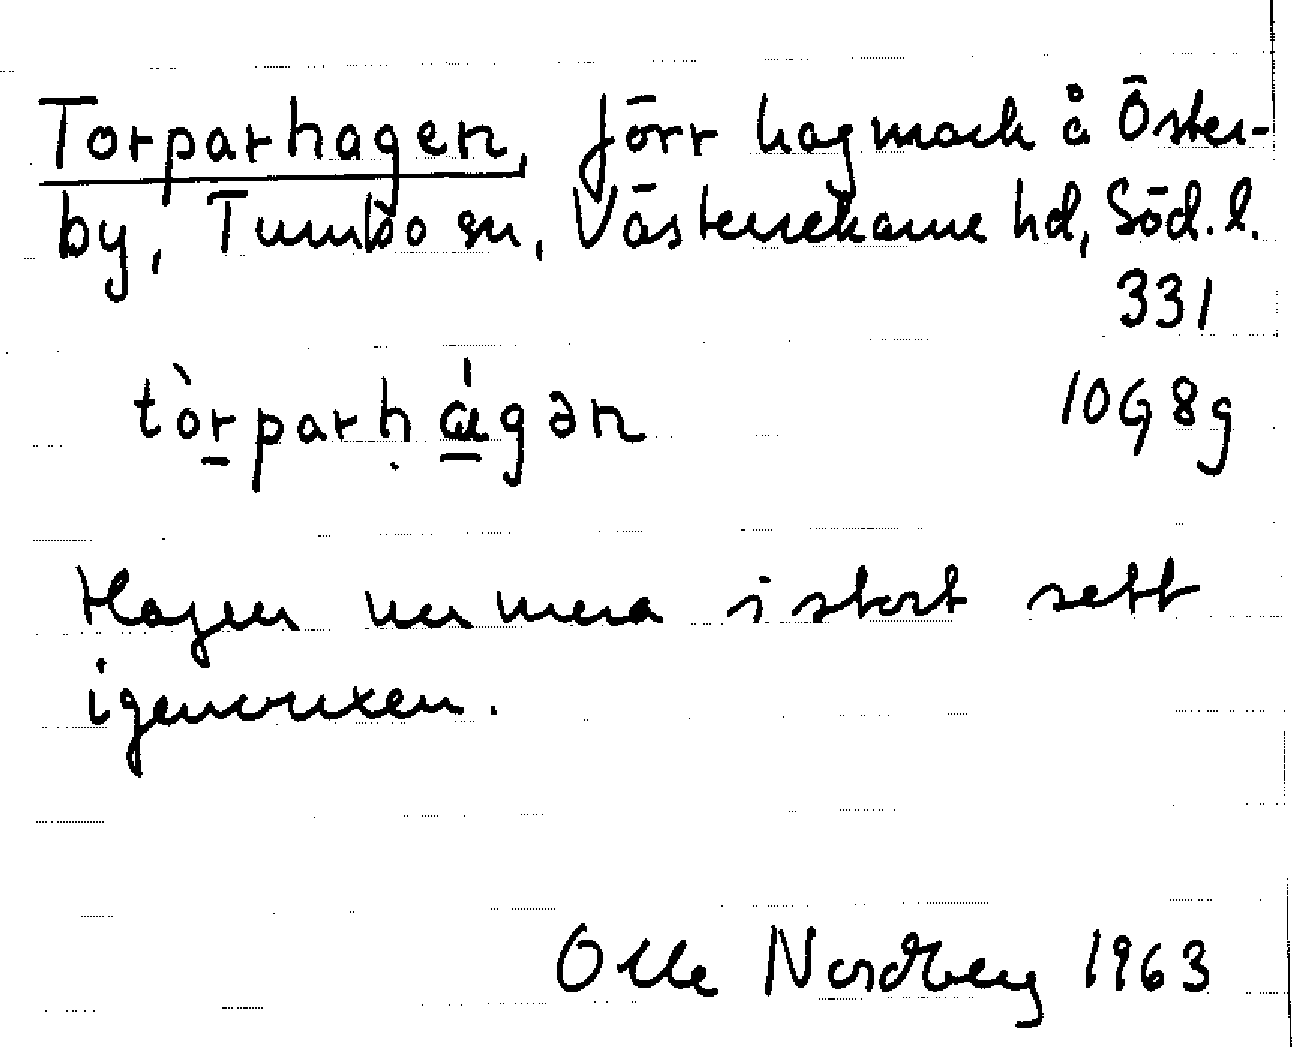 Torparhagen, förr hagmark å Öster-
by, Tumbo sn, Västerrekarne hd, Söd. l.
331
tòrparhágən 10G8g
Hagen numera i stort sett
igenvuxen.
Olle Nordberg 1963